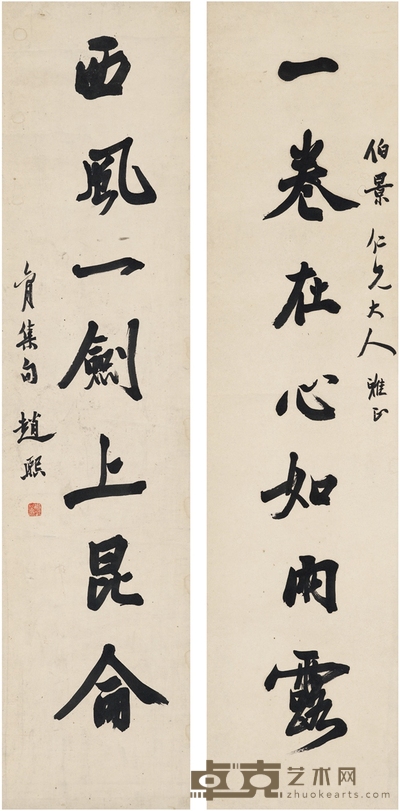 伯景仁兄大人雅正
一卷在心如雨露
西風一劍上昆侖
集句 趙熙
卓克艺术网
www.zhuokearts.com